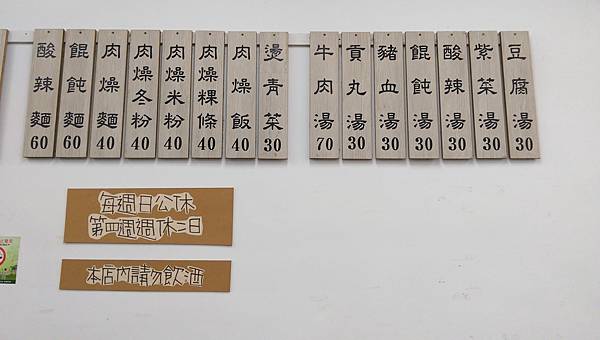 酸辣麵60
餛飩麵60
肉燥麵40
肉燥冬粉40
肉燥米粉40
肉燥粿條40
肉燥飯40
燙青菜30
牛肉湯70
貢丸湯30
豬血湯30
餛飩湯30
酸辣湯30
紫菜湯30
豆腐湯30
每週日公休
第四週週休二日
本店內請勿飲酒